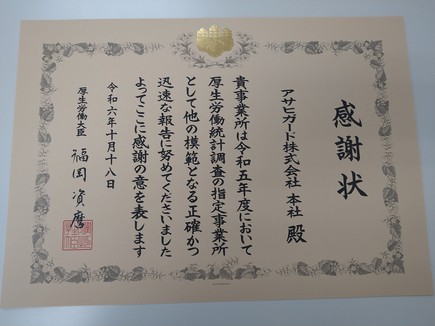 感謝状
アサヒガード株式会社 本社 殿
貴事業所は令和五年度において
厚生労働統計調査の指定事業所
として他の模範となる正確かつ
迅速な報告に努めてくださいました
よってここに感謝の意を表します
令和六年十月十八日
厚生労働大臣 福岡資麿